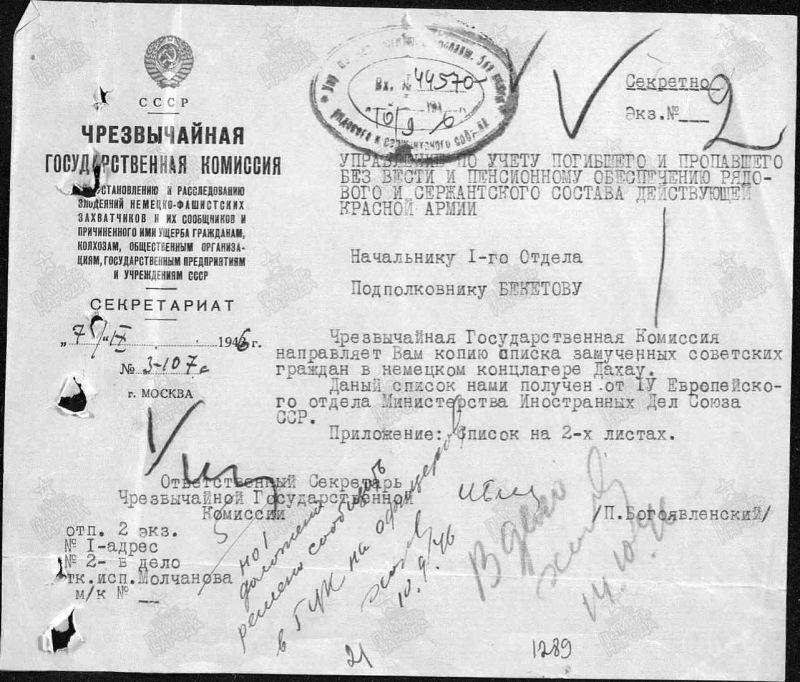 СССР
ЧРЕЗВЫЧАЙНАЯ
ГОСУДАРСТВЕННАЯ КОМИССИЯ
УСТАНОВЛЕНИЮ И РАССЛЕДОВАНИЮ
ЗЛОДЕЯНИЙ НЕМЕЦКО-ФАШИСТСКИХ
ЗАХВАТЧИКОВ И ИХ СООБЩНИКОВ И
ПРИЧИНЕННОГО ИМИ УЩЕРБА ГРАЖДАНАМ,
КОЛХОЗАМ, ОБЩЕСТВЕННЫМ ОРГАНИЗА-
ЦИЯМ, ГОСУДАРСТВЕННЫМ ПРЕДПРИЯТИЯМ
И УЧРЕЖДЕНИЯМ СССР
СЕКРЕТАРИАТ
„7" IX 1946 г.
№ 3-107с
г. МОСКВА
Вх. № 44570
10 9 6
Секретно
Экз.№ 2
УПРАВЛЕНИЕ ПО УЧЕТУ ПОГИБШЕГО И ПРОПАВШЕГО
БЕЗ ВЕСТИ И ПЕНСИОННОМУ ОБЕСПЕЧЕНИЮ РЯДО-
ВОГО И СЕРЖАНТСКОГО СОСТАВА ДЕЙСТВУЮЩЕЙ
КРАСНОЙ АРМИИ
Начальнику I-го Отдела
Подполковнику БЕКЕТОВУ
Чрезвычайная Государственная Комиссия
направляет Вам копию списка замученных советских
граждан в немецком концлагере Дахау.
Даный список нами получен от IУ Европейско-
го отдела Министерства Иностранных Дел Союза
ССР.
Приложение: Список на 2-х листах.
Ответственный Секретарь
Чрезвычайной Государственной
Комиссии
/П.Богоявленский/
отп. 2 экз.
№ I-адрес
№ 2- в дело
тк.исп.Молчанова
м/к №
решено сообщить
в ГУК на офицеров
10.9.46
В дело
14.10.46
21
1289